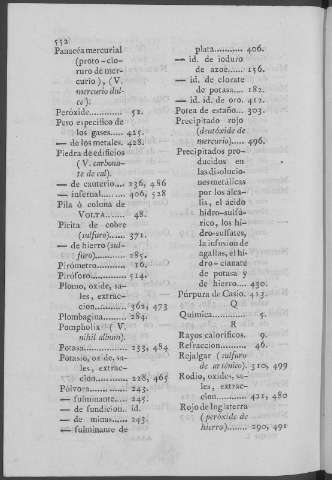 552
Panacéa mercurial
(proto-clo-
ruro de mer-
curio), (V.
mercurio dul-
ce).
Peróxide............ 52.
Peso especifico de
los gases..... 425.
— de los metales. 428.
Piedra de edificios
(V. carbona-
te de cal).
— de cauterio.... 236, 486
— infernal......... 406, 528
Pila ó colona de
VOLTA....... 48.
Pirita de cobre
(sulfuro)...... 371.
— de hierro (sul-
furo)........... 285.
Pirómetro.......... 16.
Piróforo............ 514.
Plomo, oxide, sa-
les, extrac-
cion............ 362, 473
Plombagina....... 284.
Pompholix (V.
nihil album).
Potasa.............. 233, 484
Potasio, oxide, sa-
les, extrac-
cion............ 228, 465
Pólvora............ 243.
— fulminante.... 245.
— de fundicion. id.
— de minas...... 243.
— fulminante de
plata........... 406.
— id. de ioduro
de azoe...... 156.
— id. de clorate
de potasa.... 182.
— id. id. de oro. 412.
Potea de estaño... 303.
Precipitado rojo
(deutóxide de
mercurio)..... 496.
Precipitados pro-
ducidos en
las disolucio-
nes metálicas
por los álca-
lis, el ácido
hidro-sulfú-
rico, los hi-
dro-sulfates,
la infusion de
agallas, el hi-
dro-cianate
de potasa y
de hierro.... 430.
Púrpura de Casio. 413.
Q
Química............ 5.
R
Rayos caloríficos. 9.
Refraccion......... 46.
Rejalgar (sulfuro
de arsénico). 310, 499
Rodio, oxides, sa-
les, extrac-
cion............ 421, 480
Rojo de Inglaterra
(peróxide de
hierro)........ 290, 491